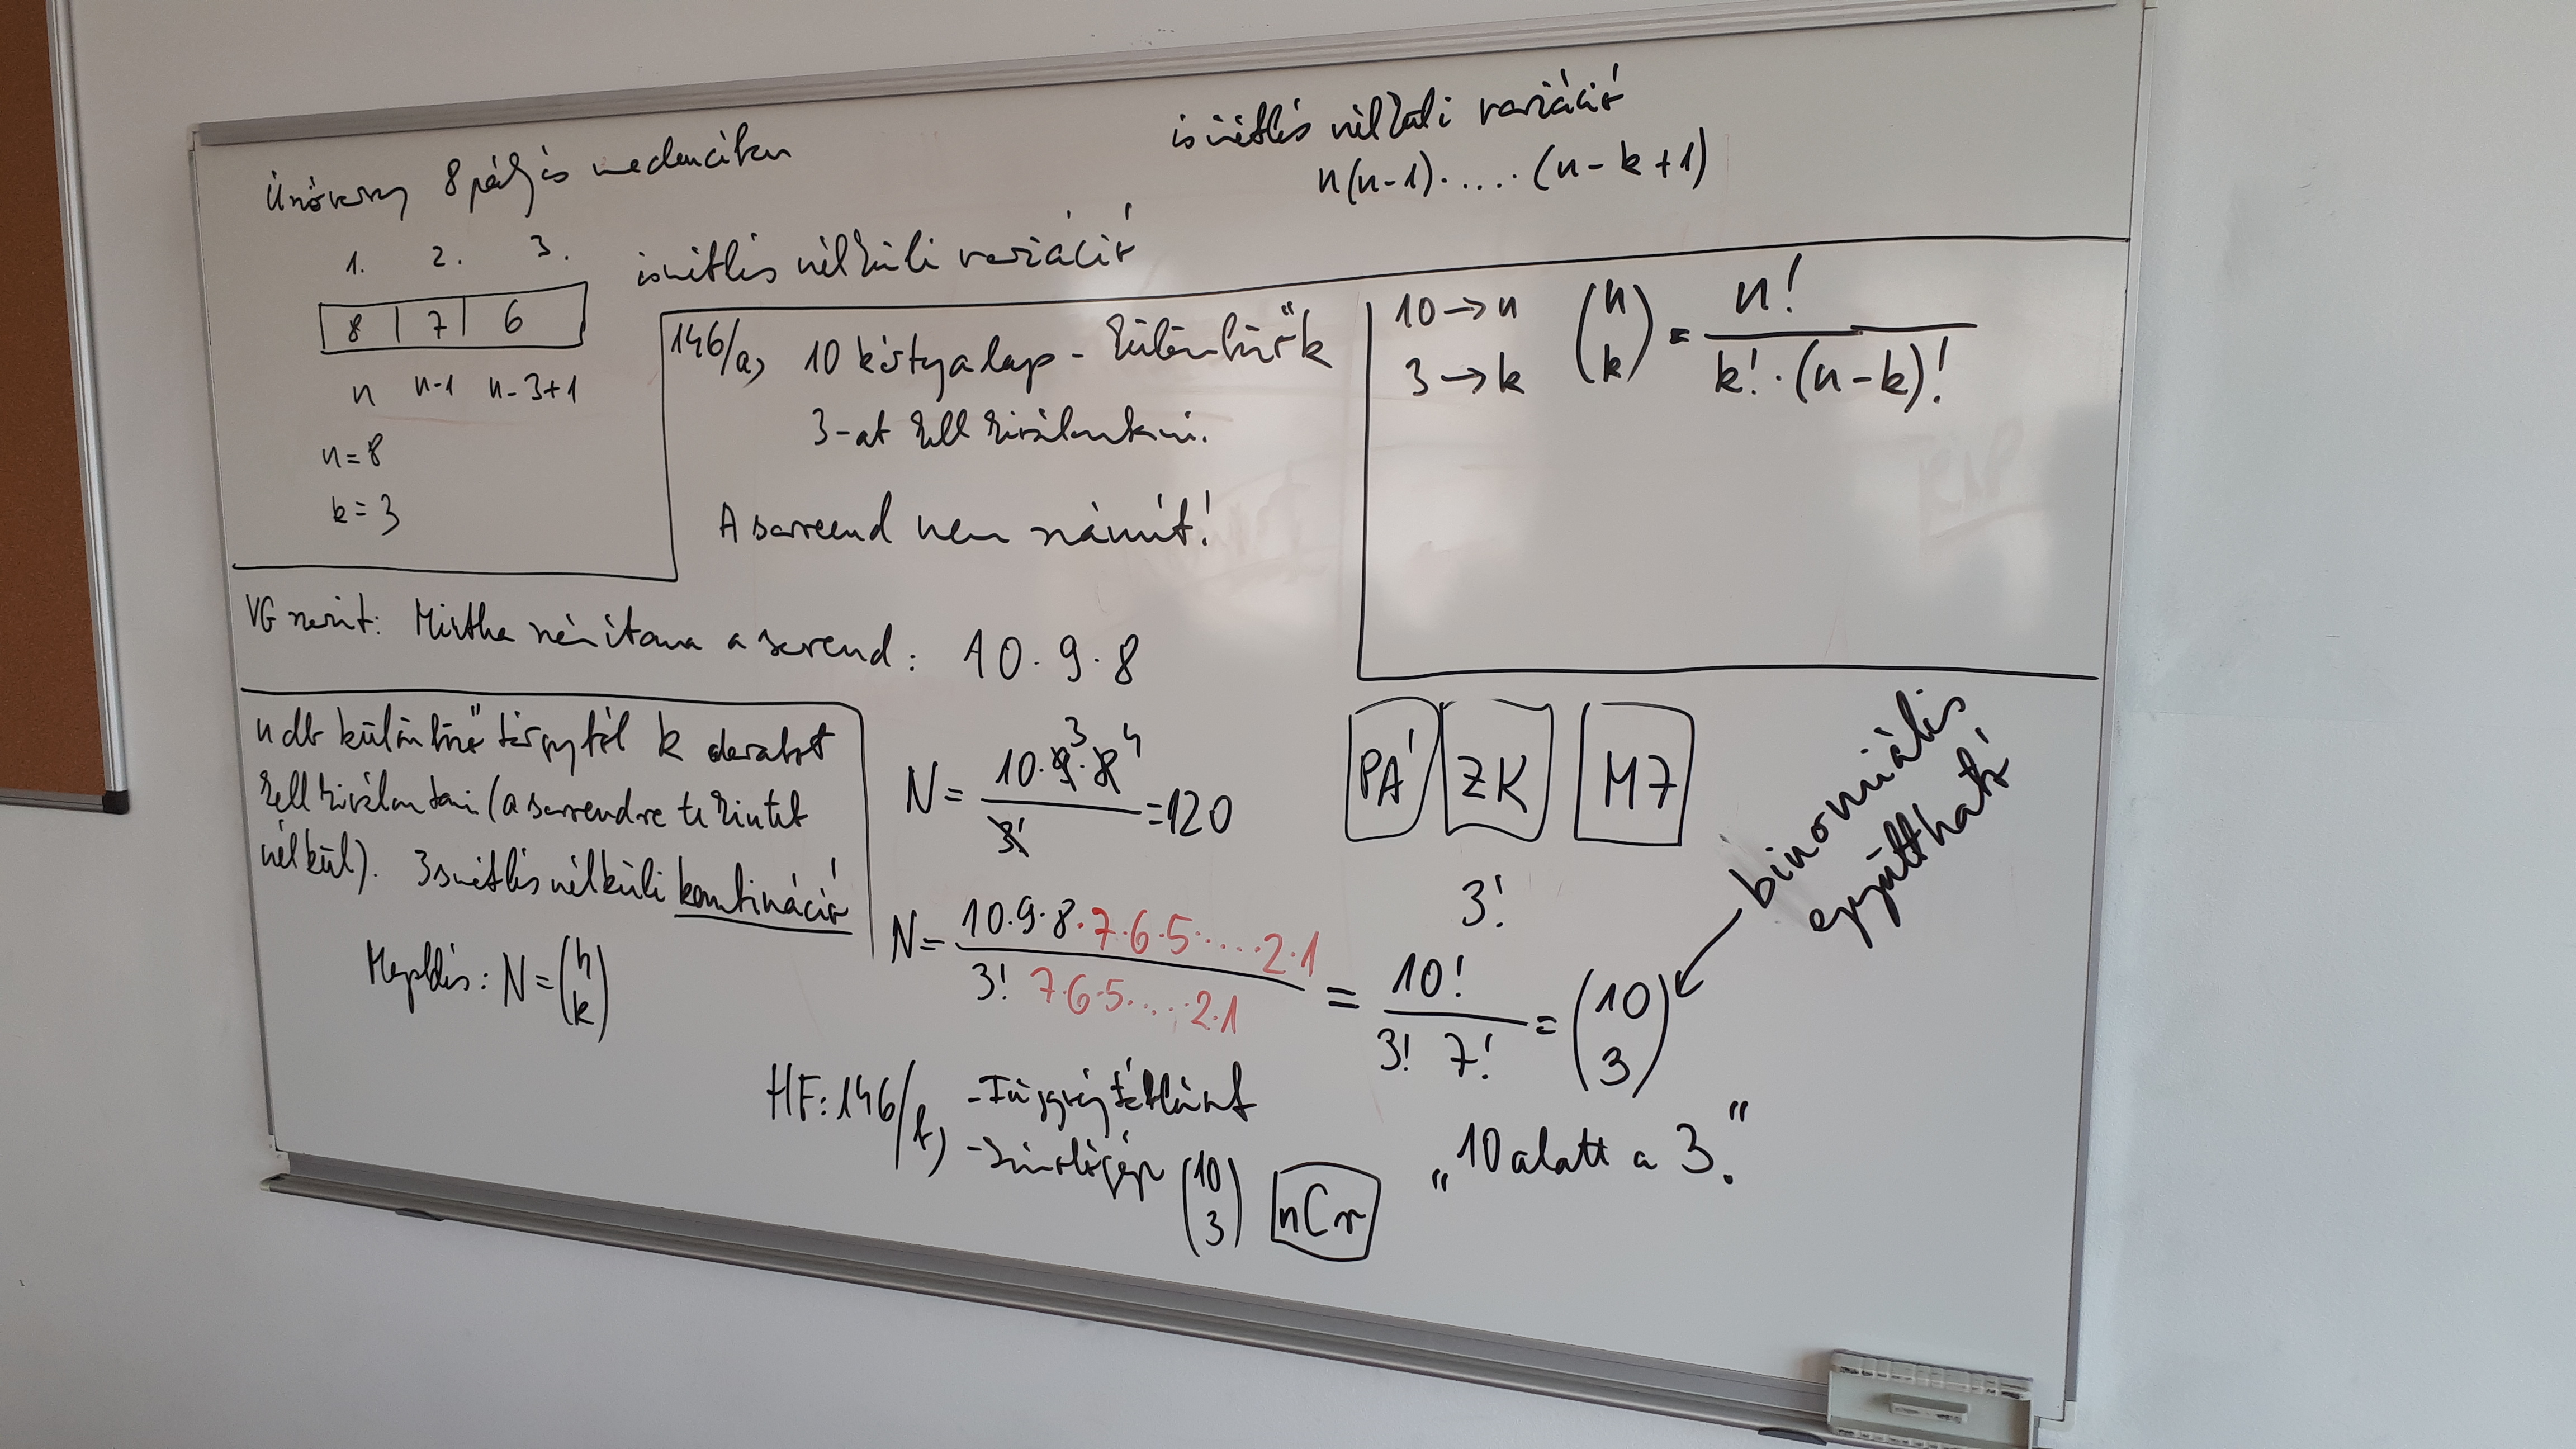 Úszóverseny 8 pályás medencében
ismétlés nélküli variáció
n(n-1)·....·(n-k+1)
1. 2. 3.
8 | 7 | 6
n n-1 n-3+1
n=8
k=3
ismétlés nélküli variáció
146/a, 10 kártyalap - különbözők
3-at kell kiválasztani.
A sorrend nem számít!
10→n
3→k
(n k) = n! / k!·(n-k)!
VG szerint: Mintha számítana a sorrend: 10·9·8
n db különböző tárgyból k darabot
kell kiválasztani (a sorrendre tekintet
nélkül). Ismétlés nélküli kombináció
Megoldás: N=(n k)
N= 10·9³·8⁴ / 3! =120
PÁ ZK M7
3!
N= 10·9·8·7·6·5·....2·1 / 3! 7·6·5·....2·1 = 10! / 3! 7! = (10 3)
binomiális
együttható
„10 alatt a 3."
HF: 146/b, -Függvénytáblázat
-Számológép (10 3) nCr